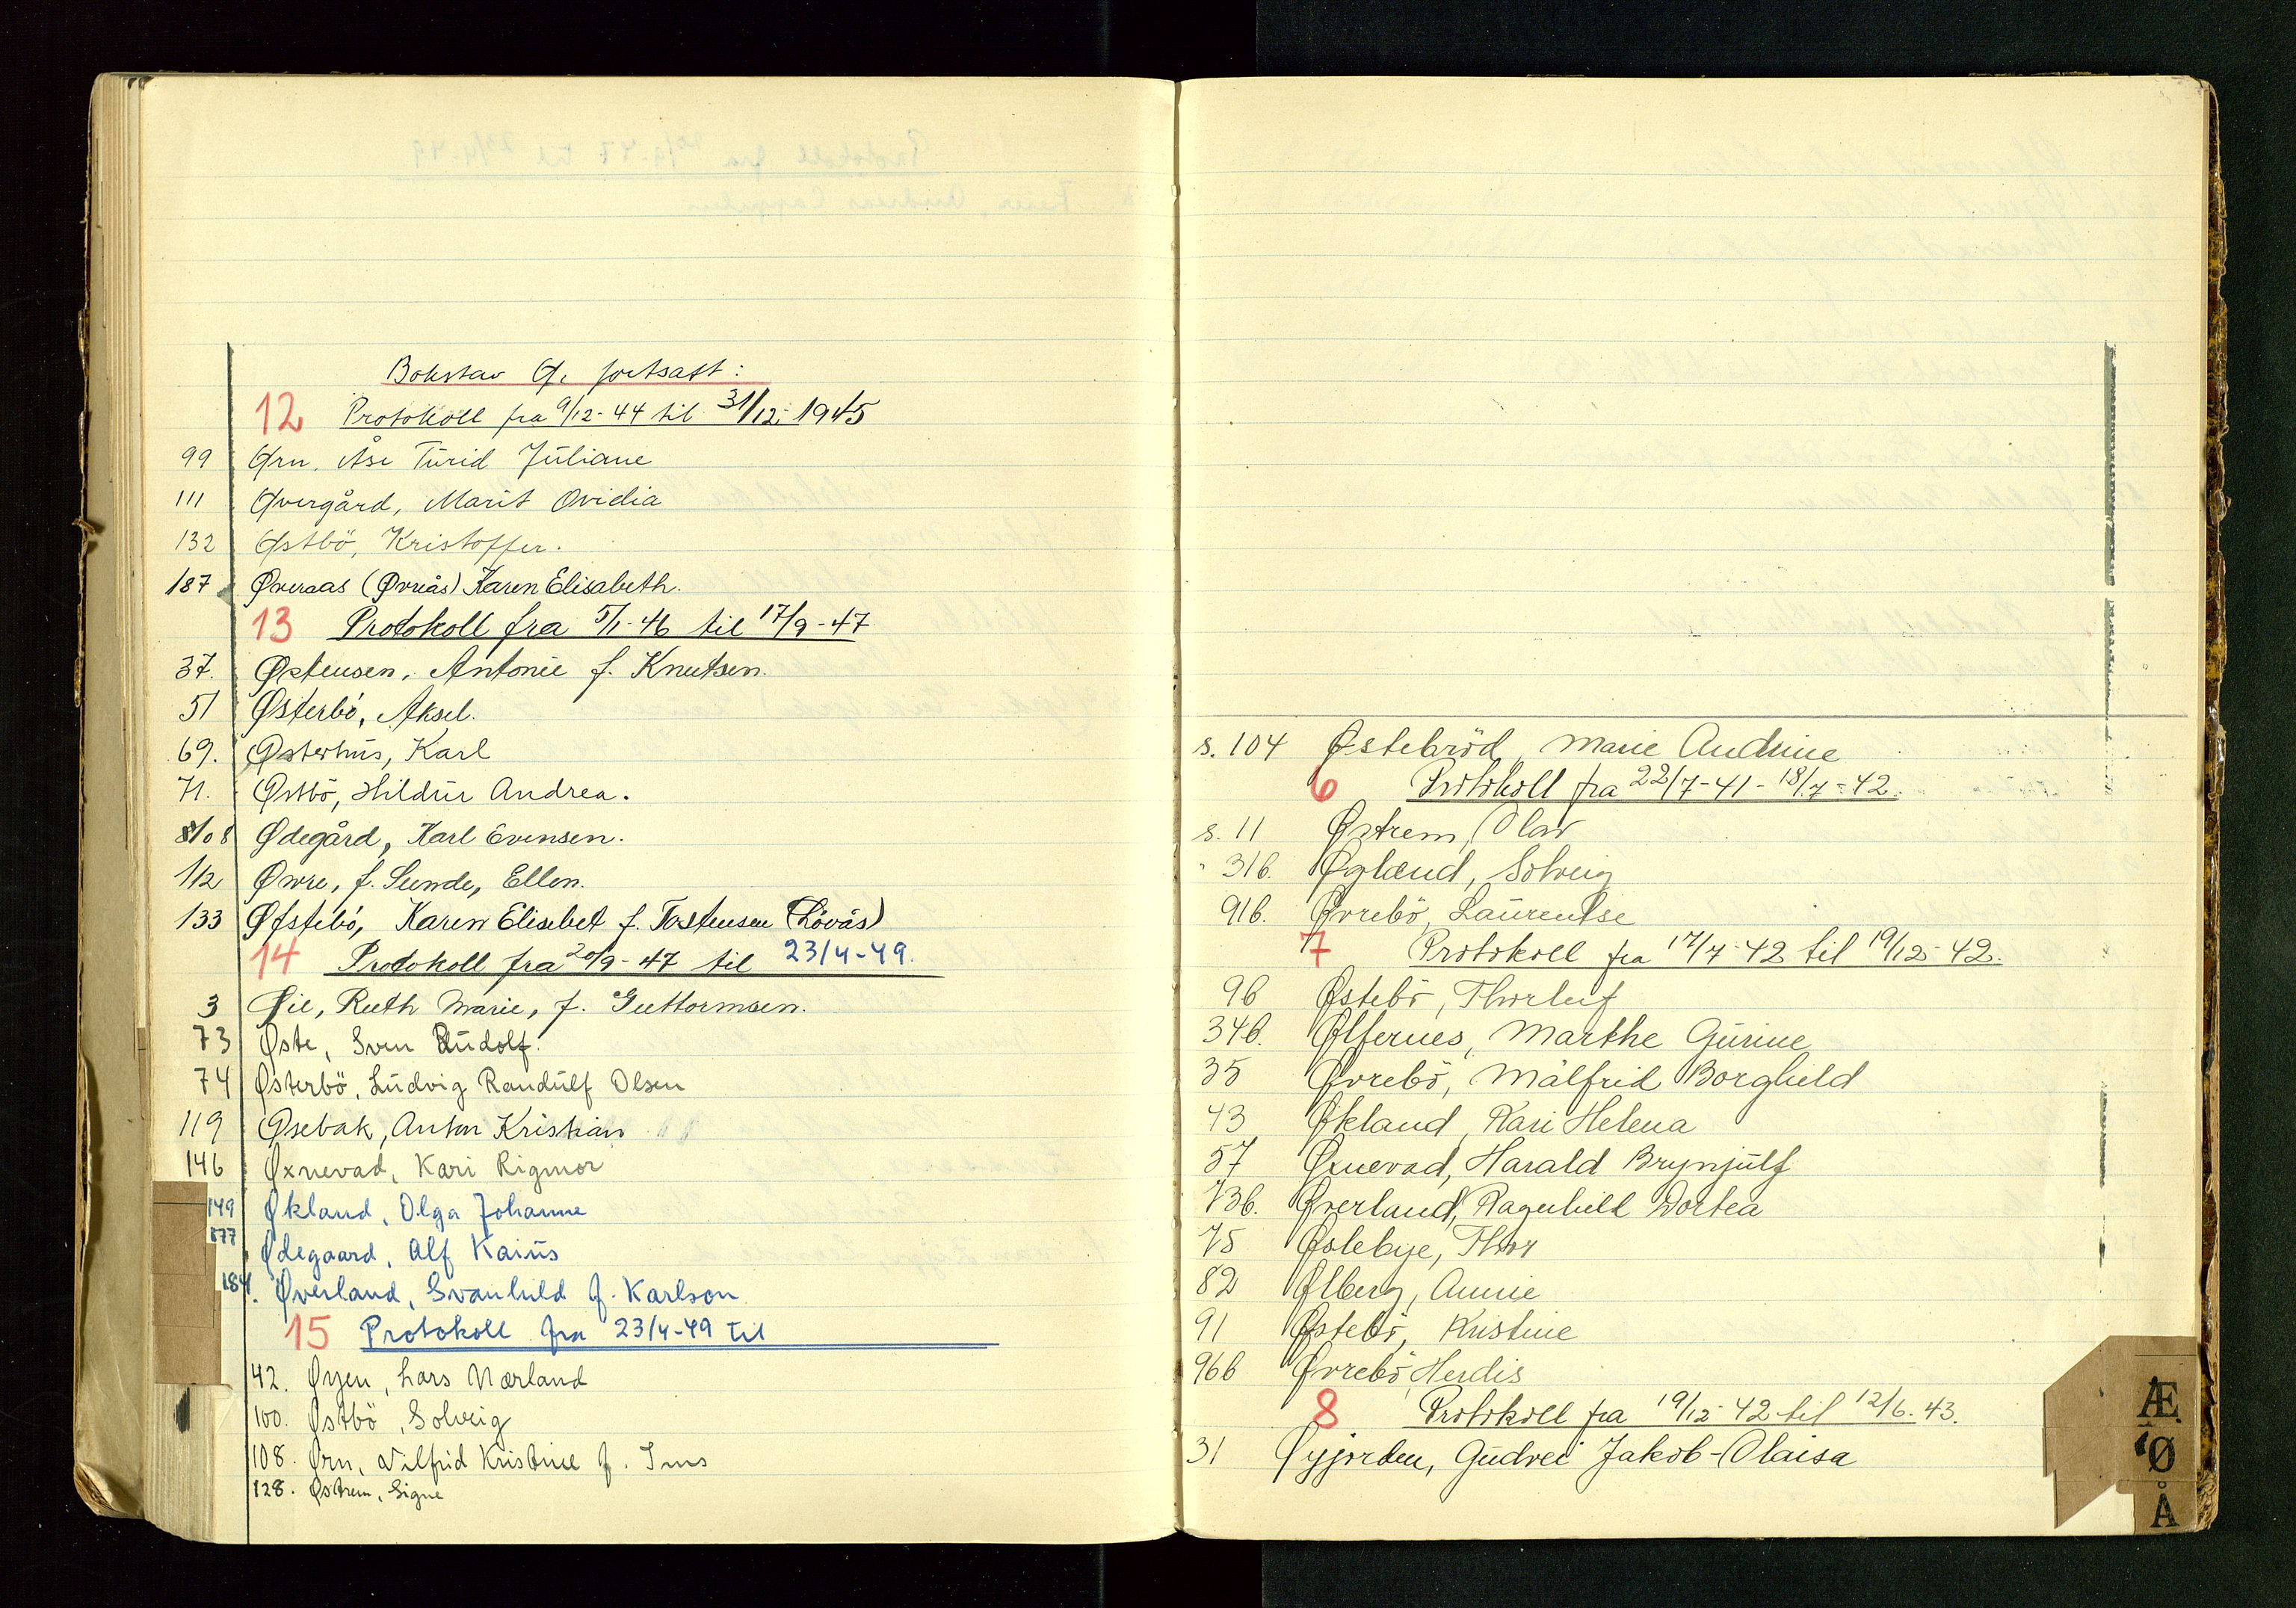 Bokstav Ø. fortsatt:
12 Protokoll fra 9/12-44 til 31/12-1945
99 Ørn, Åse Turid Juliane
111 Øvergård, Marit Ovidia
132 Østbö, Kristoffer.
187 Øveraas (Øvreås) Karen Elisabeth.
13 Protokoll fra 5/1-46 til 17/9-47
37. Østensen, Antonie f. Knutsen.
51 Østerbö, Aksel.
69. Østerhus, Karl
71. Østbö, Hildur Andrea.
108 Ødegård, Karl Evensen.
112 Øvre, f. Sunde, Ellen.
133 Øfstebö, Karen Elisebet f. Tostensen (Lövås)
14 Protokoll fra 20/9-47 til 23/4-49.
3 Øie, Ruth Marie, f. Guttormsen.
73 Øste, Sven Rudolf.
74 Østerbö, Ludvig Randulf Olsen
119 Øsebak, Anton Kristian
146 Øxnevad, Kari Rigmor
149 Økland, Olga Johanne
177 Ødegaard, Alf Kaius
184. Øverland, Svanhild f. Karlson
15 Protokoll fra 23/4-49 til
42. Øyen, Lars Nærland
100. Østbö, Solveig
108. Ørn, Vilfrid Kristine f. Ims
128. Østrem, Signe
s. 104 Østebröd, Marie Andrine
6 Protokoll fra 22/7-41 - 18/7-42.
s. 11 Østrem, Olav
" 31b. Øgland, Solveig
91b. Øvrebö, Laurentse
7 Protokoll fra 17/7-42 til 19/12-42.
9b Østebö, Thorleif
34b. Ølfernes, Marthe Gurine
35 Øvrebö, Målfrid Borghild
43 Økland, Kari Helena
57 Øxnevad, Harald Brynjulf
73b. Øverland, Ragnhild Dortea
75 Øslebye, Thor
82 Ølberg, Annie
91 Østebö, Kristine
96b Øvrebö, Herdis
8 Protokoll fra 19/12-42 til 12/6.43.
31 Øyjorden, Gudrei Jakob-Olaisa
Æ
Ø
Å